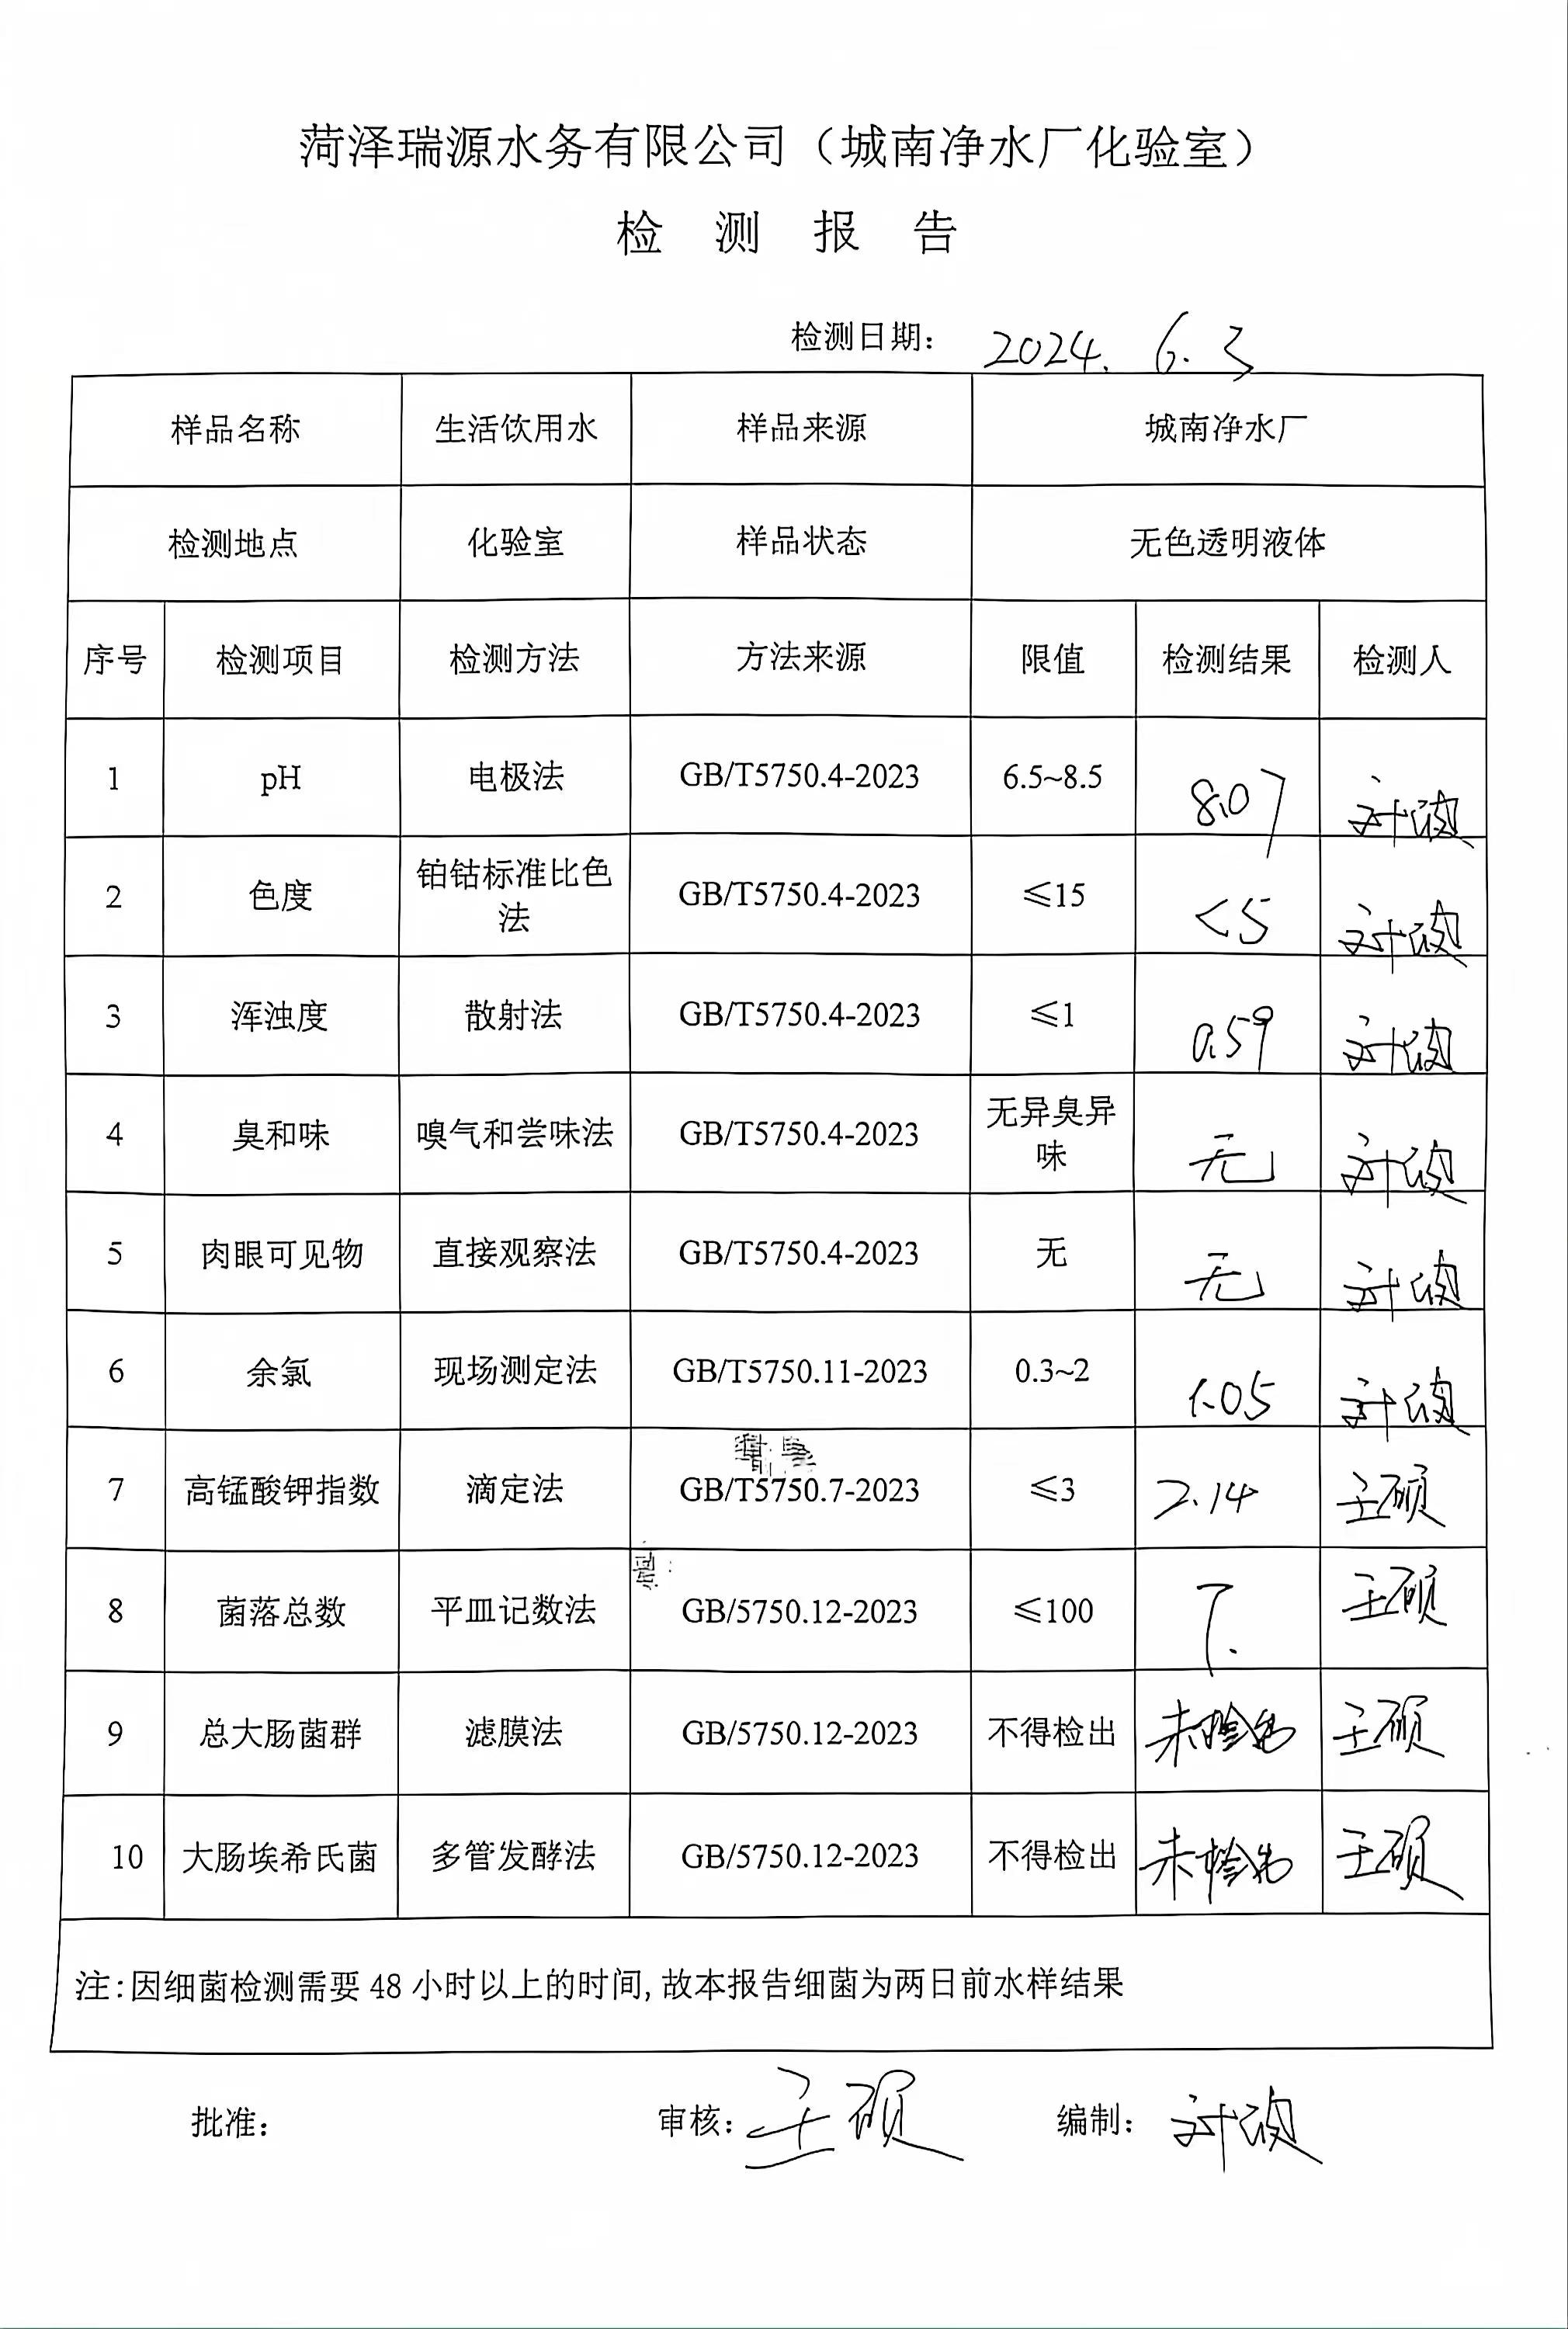 菏泽瑞源水务有限公司（城南净水厂化验室）
检 测 报 告
检测日期： 2024. 6. 3
样品名称 生活饮用水 样品来源 城南净水厂
检测地点 化验室 样品状态 无色透明液体
序号 检测项目 检测方法 方法来源 限值 检测结果 检测人
1 pH 电极法 GB/T5750.4-2023 6.5~8.5 8.07
2 色度 铂钴标准比色法 GB/T5750.4-2023 ≤15 <5
3 浑浊度 散射法 GB/T5750.4-2023 ≤1 0.59
4 臭和味 嗅气和尝味法 GB/T5750.4-2023 无异臭异味 无
5 肉眼可见物 直接观察法 GB/T5750.4-2023 无 无
6 余氯 现场测定法 GB/T5750.11-2023 0.3~2 1.05
7 高锰酸钾指数 滴定法 GB/T5750.7-2023 ≤3 2.14 王硕
8 菌落总数 平皿记数法 GB/5750.12-2023 ≤100 王硕
9 总大肠菌群 滤膜法 GB/5750.12-2023 不得检出 未检出 王硕
10 大肠埃希氏菌 多管发酵法 GB/5750.12-2023 不得检出 未检出 王硕
注:因细菌检测需要 48 小时以上的时间,故本报告细菌为两日前水样结果
批准： 审核: 王硕 编制：